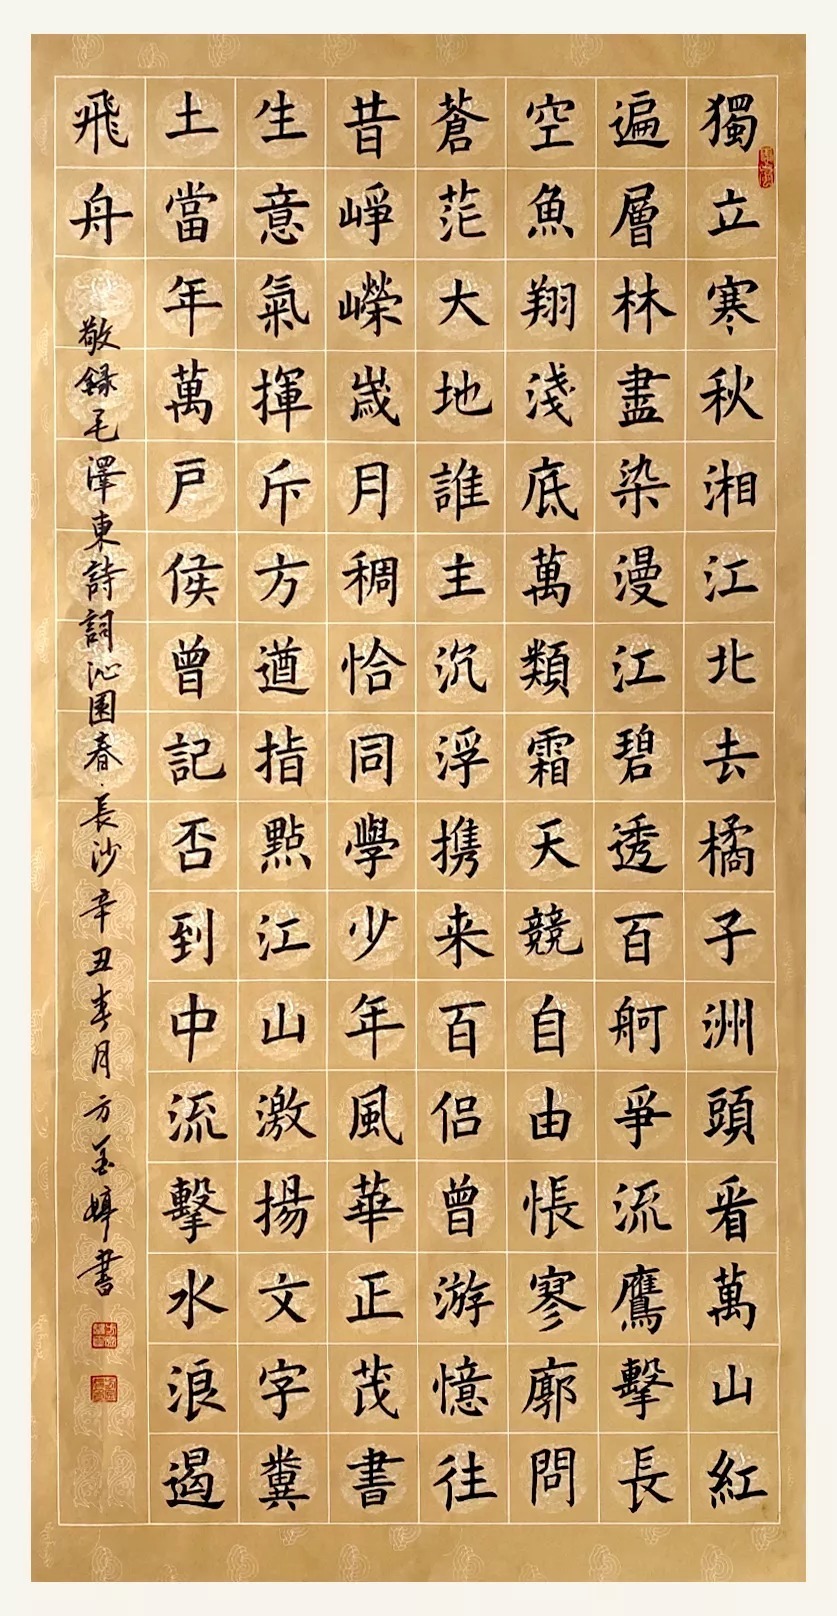 獨立寒秋湘江北去橘子洲頭看萬山紅
遍層林盡染漫江碧透百舸爭流鷹擊長
空魚翔淺底萬類霜天競自由悵寥廓問
蒼茫大地誰主沉浮携来百侣曾游憶往
昔崢嶸歲月稠恰同學少年風華正茂書
生意氣揮斥方遒指點江山激揚文字糞
土當年萬戶侯曾記否到中流擊水浪遏
飛舟
敬録毛澤東詩詞沁園春·長沙辛丑春月方婷書